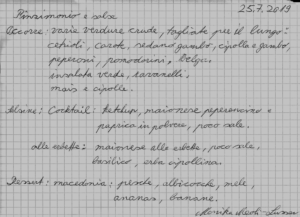 25.7.2019
Pinzimonio e salse
Occorre: varie verdure crude, tagliate per il lungo:
cetrioli, carote, sedano gambo, cipolla e gambo,
peperoni, pomodorini, belga.
insalata verde, ravanelli,
mais e cipolle.
Salsine: Cocktail: Ketchup, maionese, peperoncino e
paprica in polvere, poco sale.
alle erbette: maionese alle erbette, poco sale,
basilico, erba cipollina.
Dessert: macedonia: pesche, albicocche, mele,
ananas, banane.